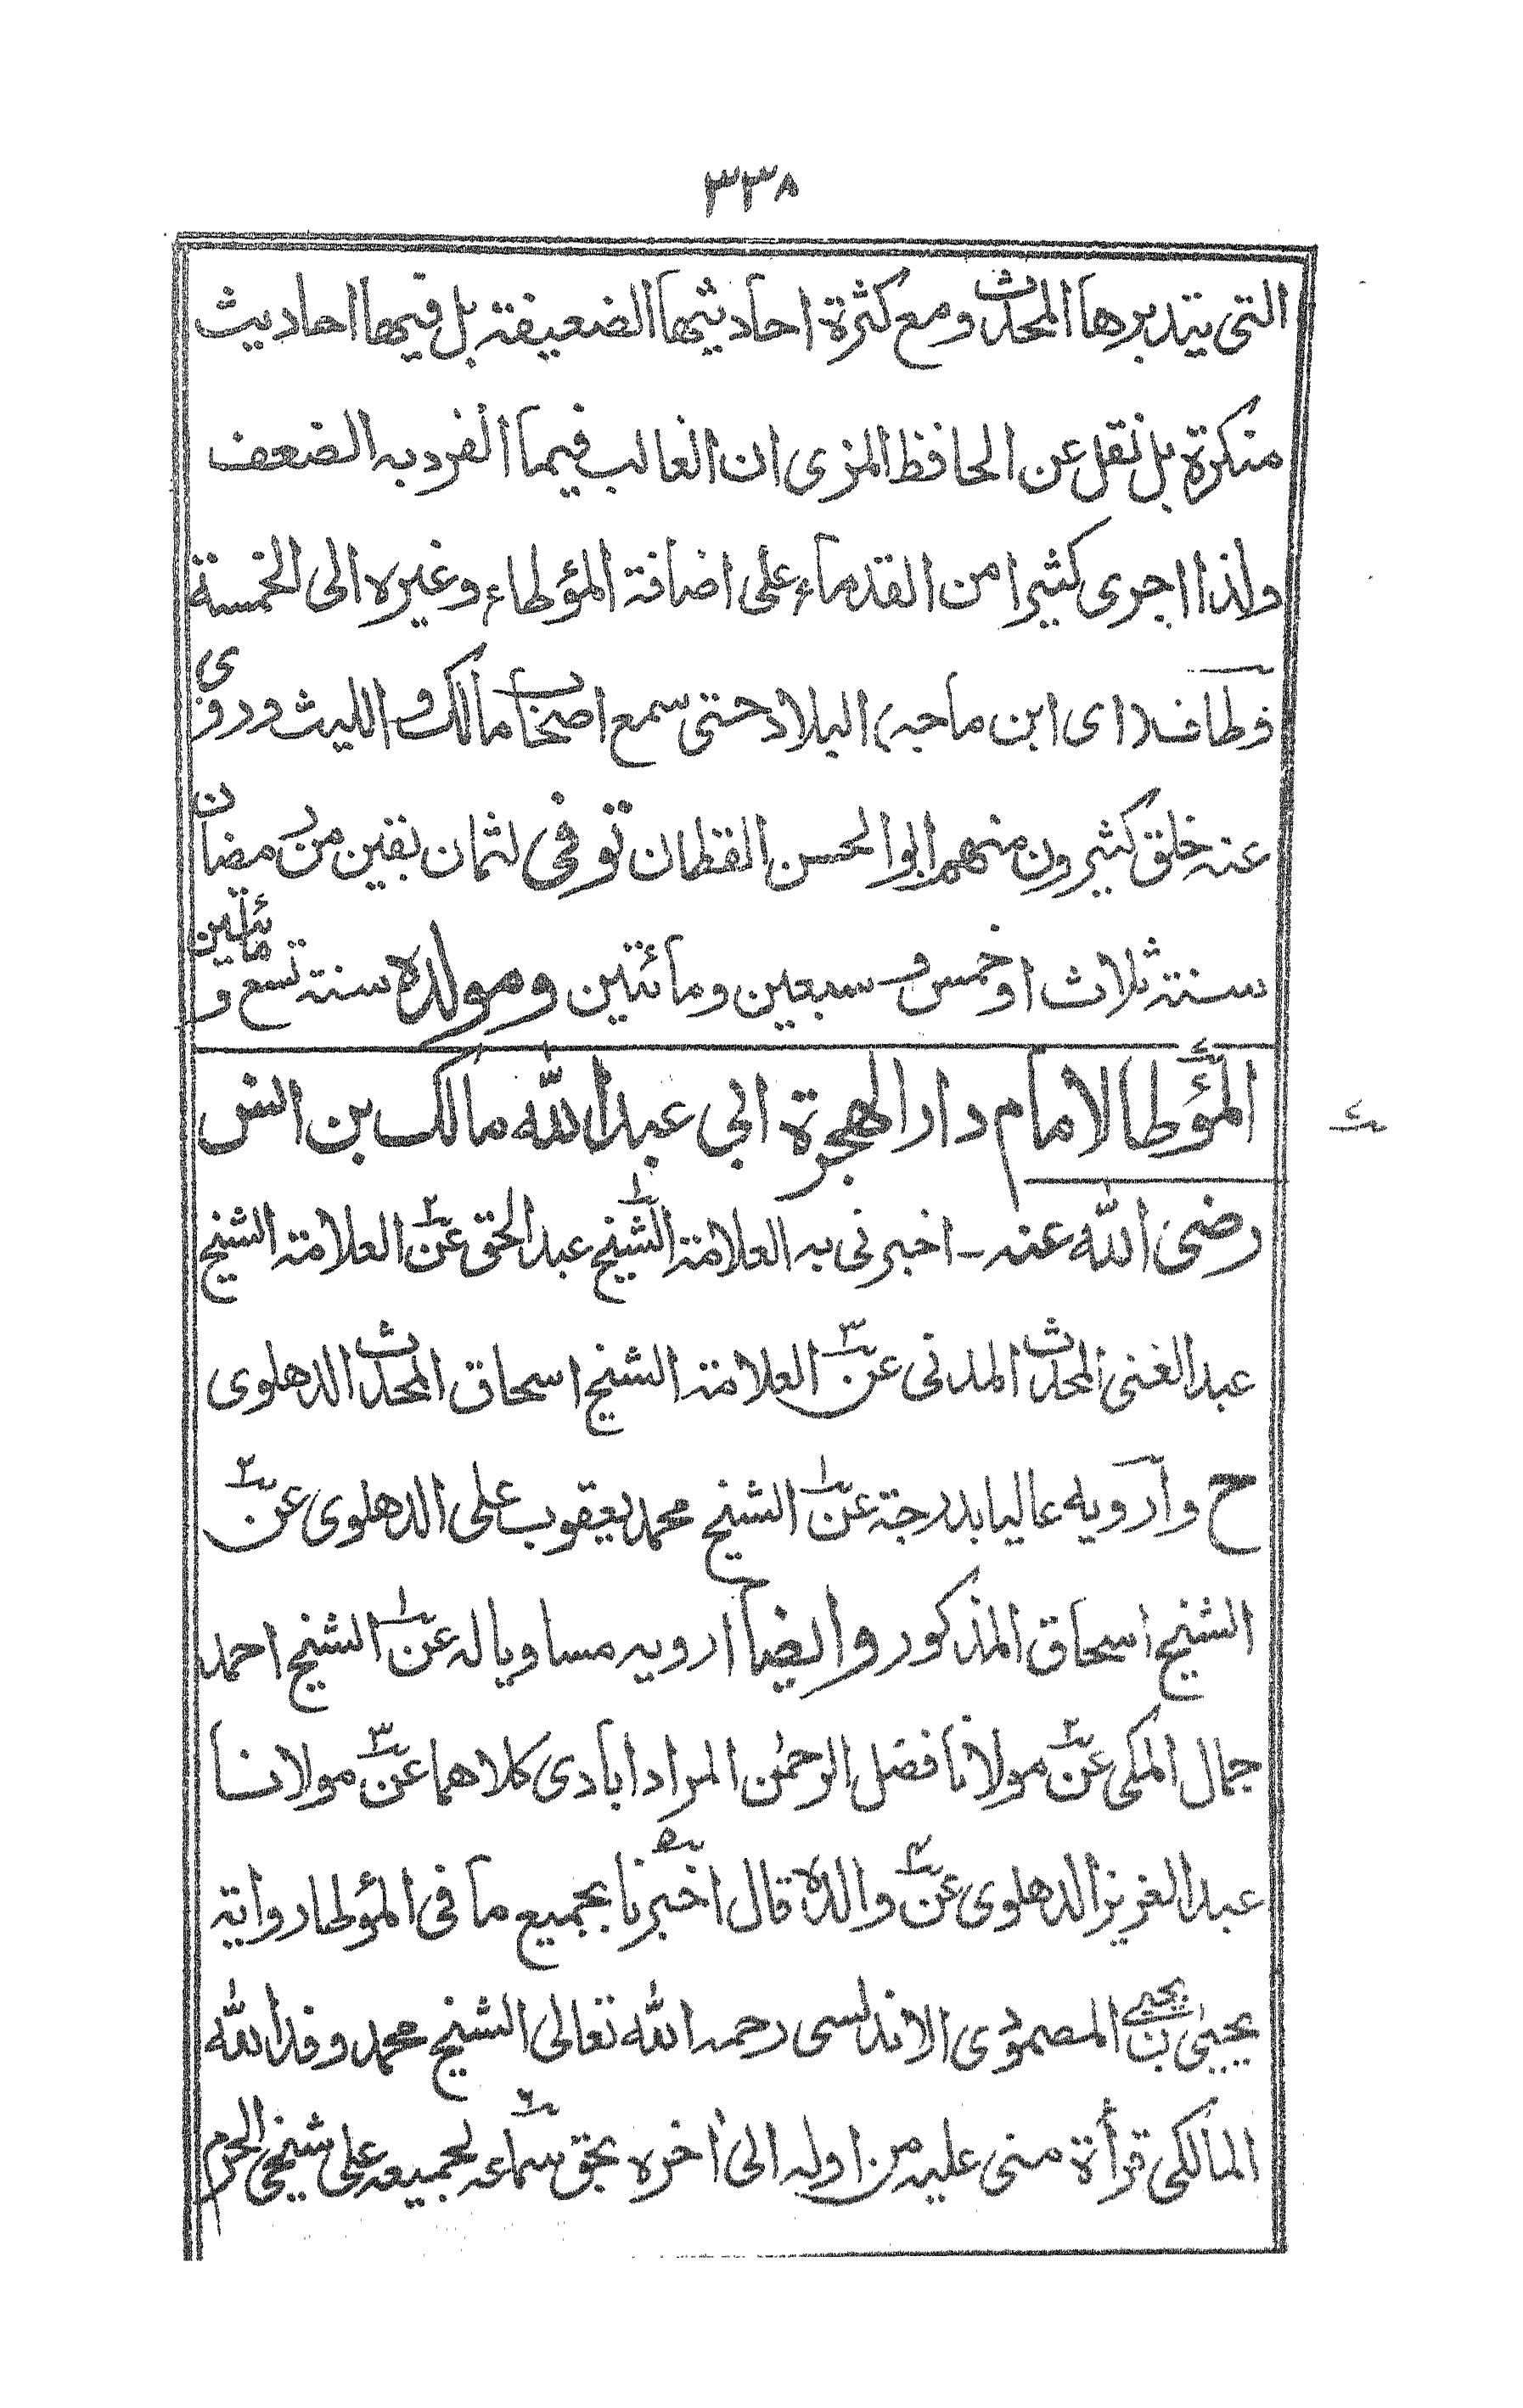 ٣٣٨
التى يتدبرها المحدث ومع كثرة احاديثها الضعيفة بل فيها احاديث
منكرة بل نقل عن الحافظ المزى ان الغالب فيما انفرد به الضعف
ولذا اجرى كثيرا من القدماء على اضافة المؤطاء وغيره الى الخمسة
وطاف (اى ابن ماجه) البلاد حتى سمع اصحاب مالك والليث وروى
عنه خلق كثيرون منهم ابو الحسن القطان توفى لثمان بقين من رمضان
سنة ثلاث او خمس و سبعين ومائتين ومولده سنة تسع و مائتين
المؤطا لامام دار الهجرة ابى عبد الله مالك بن انس
رضى الله عنه - اخبرنى به العلامة الشيخ عبد الحق عن العلامة الشيخ
عبد الغنى المحدث المدنى عن العلامة الشيخ اسحاق المحدث الدهلوى
ح وارويه عاليا بدرجة عن الشيخ محمد يعقوب على الدهلوى عن
الشيخ اسحاق المذكور وايضا ارويه مساويا له عن الشيخ احمد
جمال المكى عن مولانا فضل الرحمٰن المراد ابادى كلاهما عن مولانا
عبد العزيز الدهلوى عن والده قال اخبرنا بجميع ما فى المؤطا رواية
يحيىٰ بن يحيى المصمودى الاندلسى رحمه الله تعالى الشيخ محمد وفد الله
المالكى قرأة منى عليه من اوله الى اٰخره بحق سماعه لجميعه على شيخى الحرم